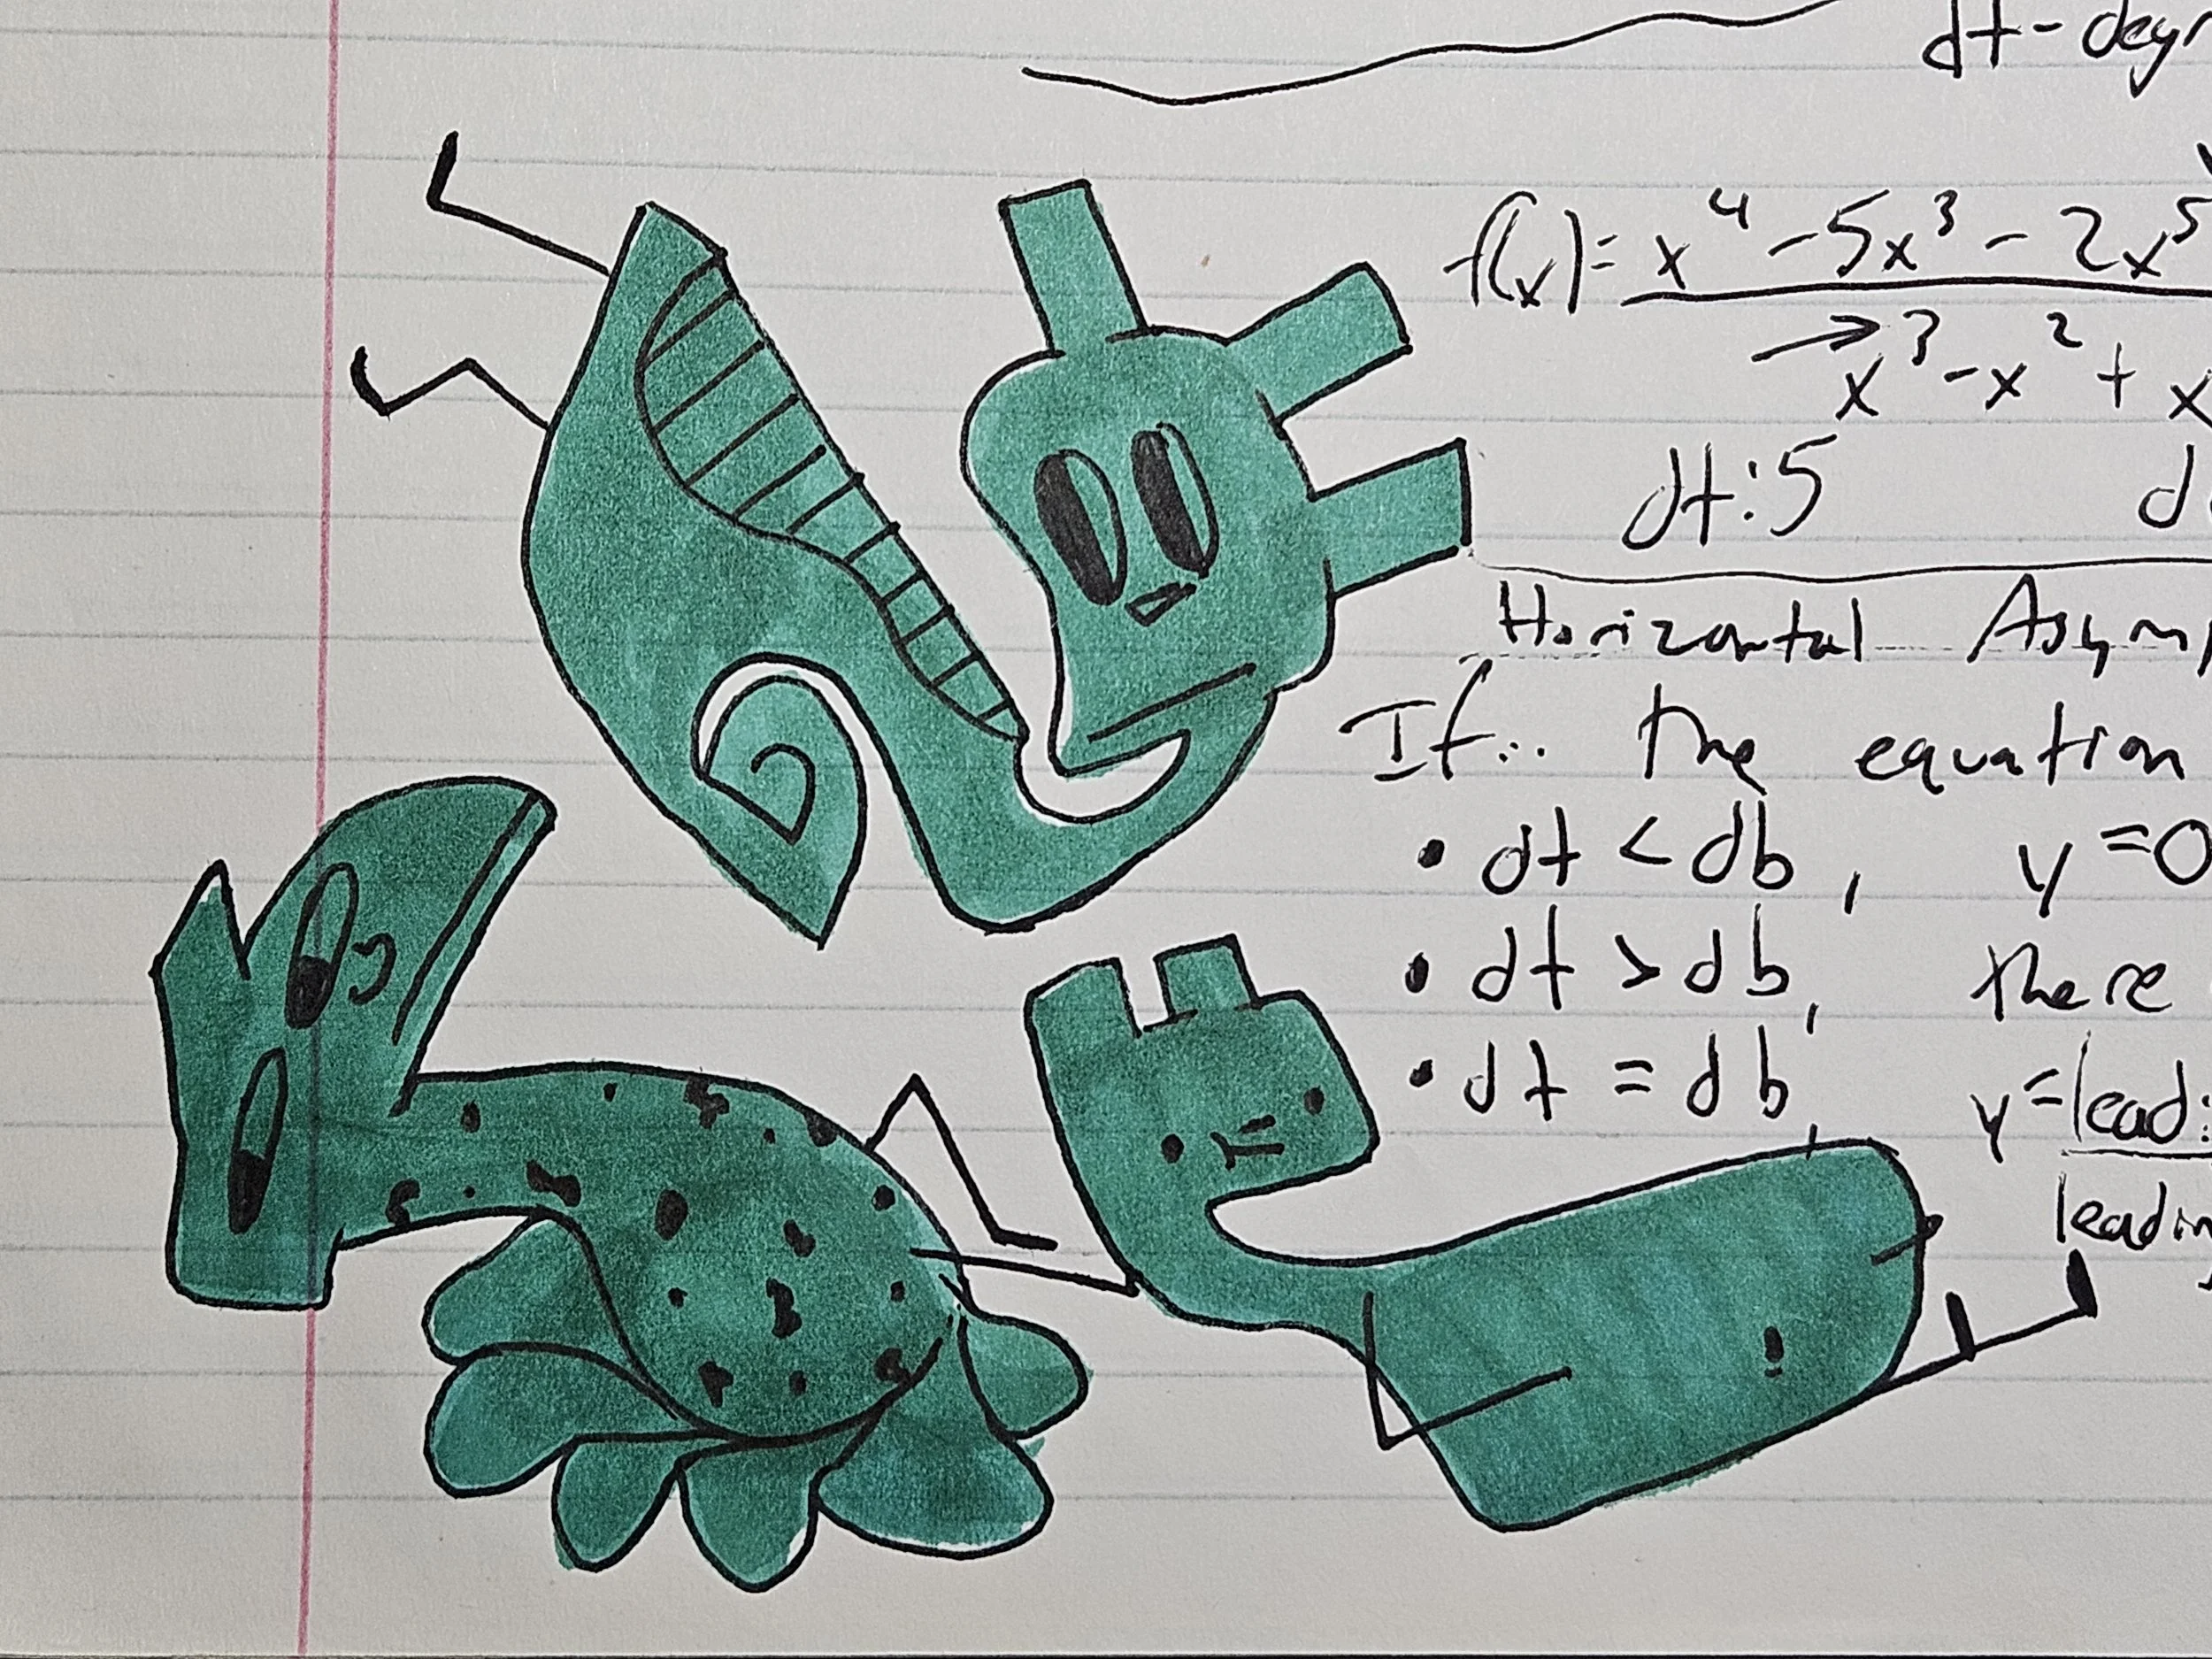 dt-degr
f(x)= x⁴ - 5x³ - 2x⁵
x³ - x² + x
dt:5 d
Horizontal Asymp
If... the equation
• dt < db, y=0
• dt > db, there
• dt = db, y=lead:
leadin